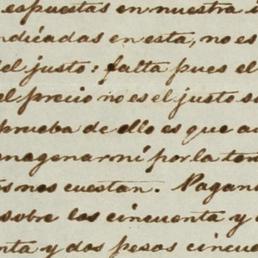 espuestas en nuestra
ndicadas en esta, no es
el justo: falta pues el
el precio no es el justo s
prueba de ello es que a
nagenarni por la ter
s nos cuestan. Pagan
sobre los cincuenta y
nta y dos pesos cincue